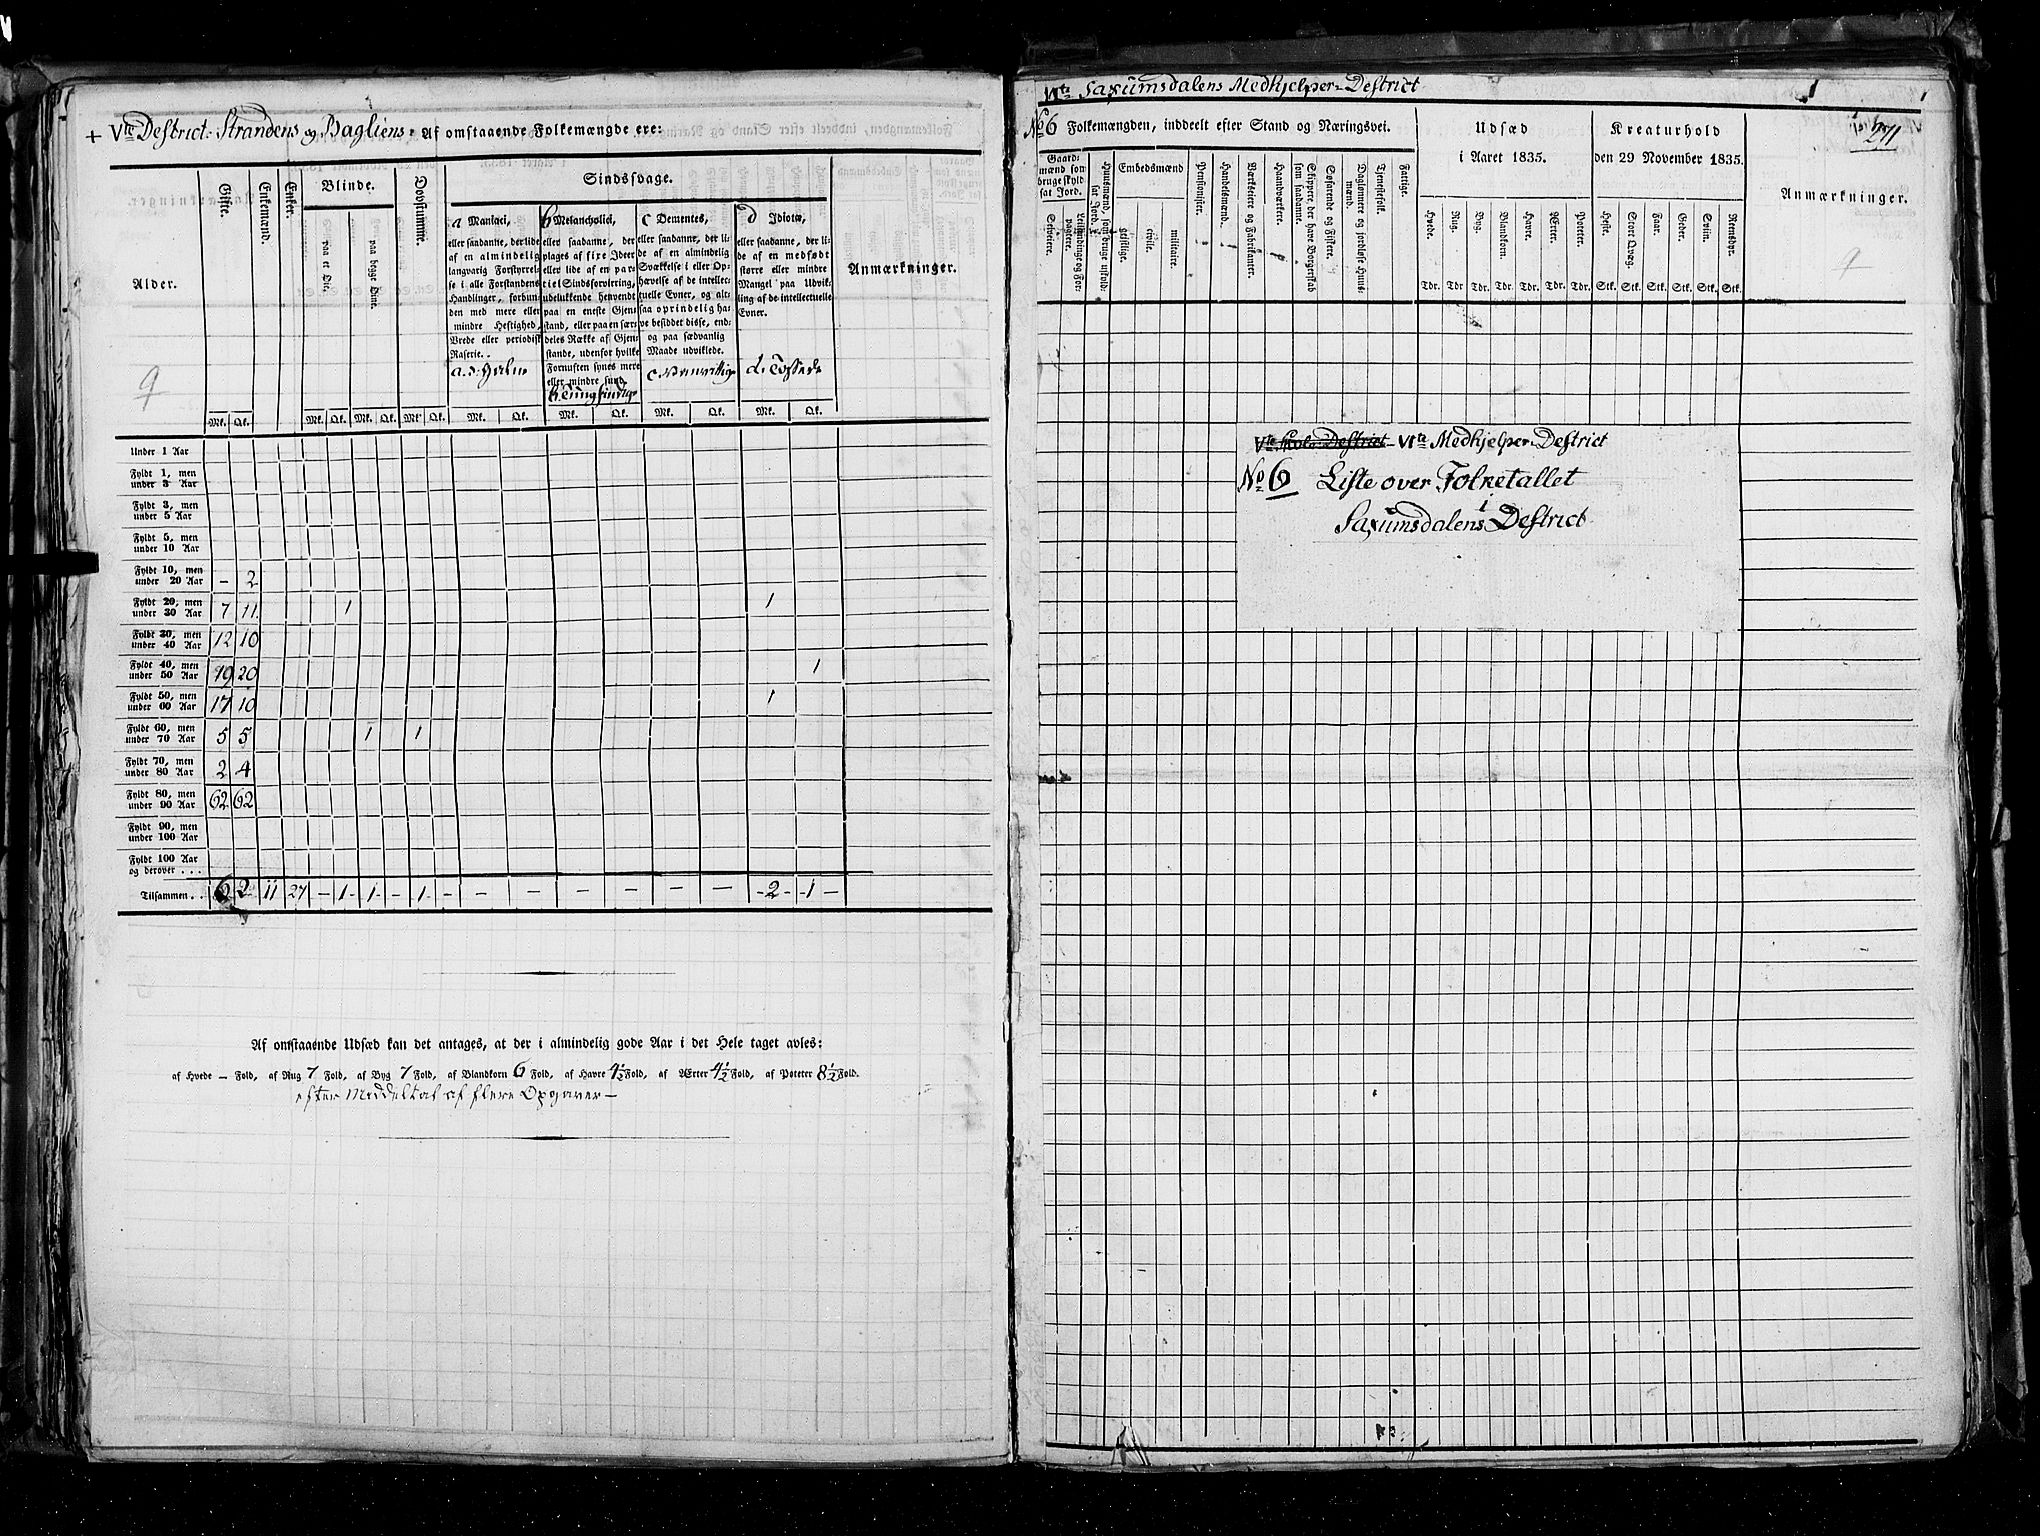 + Vte District. Strandens og Bagliens. Af omstaaende Folkemængde ere:
Alder.
Gifte.
Enkemænd.
Enker.
Blinde.
paa et Øie.
paa begge Øine.
Døvstumme.
Sindssvage.
a Maniaci,
eller saadanne, der lide
af en almindelig
langvarig Forstyrrel-
se i alle Forstandens
Handlinger, forbun-
den med mere eller
mindre Heftighed,
Vrede eller periodisk
Raserie.
b Melancholici,
eller saadanne, der
plages af fixe Ideer
eller lide af en par-
tiel Sindsforvirring,
udelukkende henvendt
paa en eneste Gjen-
stand, eller paa en sær-
deles Række af Gjen-
stande, udenfor hvilke
Fornuften synes mere
eller mindre sund.
b. Tungsindige
c Dementes,
eller saadanne, der li-
de af en almindelig
Svækkelse i eller Op-
hævelse af de intellec-
tuelle Evner, og alt-
saa oprindelig ha-
ve besiddet disse, end-
og paa sædvanlig
Maade udviklede.
c. Vanvittige
d Idioter,
eller saadanne, der li-
de af en medfødt
større eller mindre
Mangel paa Udvik-
ling af de intellectuelle
Evner.
d. Tossede
Anmærkninger.
9
Mk. Qk. Mk. Qk. Mk. Qk. Mk. Qk. Mk. Qk. Mk. Qk. Mk. Qk. Mk. Qk.
Under 1 Aar
Fyldt 1, men
under 3 Aar
Fyldt 3, men
under 5 Aar
Fyldt 5, men
under 10 Aar
Fyldt 10, men
under 20 Aar – 2
Fyldt 20, men
under 30 Aar 7 11. 1 1
Fyldt 30, men
under 40 Aar 12 10
Fyldt 40, men
under 50 Aar 19 20 1
Fyldt 50, men
under 60 Aar 17 10 1
Fyldt 60, men
under 70 Aar 5 5 1 1
Fyldt 70, men
under 80 Aar 2 4
Fyldt 80, men
under 90 Aar 62 62
Fyldt 90, men
under 100 Aar
Fyldt 100 Aar
og derover . . .
Tilsammen . . 62 11 27 – 1 - 1 - – 1 - – – – – – – – - 2 - - 1 –
Af omstaaende Udsæd kan det antages, at der i almindelig gode Aar i det Hele taget avles:
af Hvede – Fold, af Rug 7 Fold, af Byg 7 Fold, af Blandkorn 6 Fold, af Havre 4½ Fold, af Ærter 4½ Fold, af Poteter 8½ Fold.
efter Middeltal af flere Opgaver –
VIte Saxumsdalens Medhjelper-District
1
1
271
No 6 Folkemængden, inddeelt efter Stand og Næringsvei.
Udsæd
i Aaret 1835.
Kreaturhold
den 29 November 1835.
Anmærkninger.
9
Gaard-
mænd som
bruge skyld-
sat Jord.
Selveiere.
Leilændinge og For-
pagtere.
Huusmænd, som bruge uskyld-
sat Jord.
Embedsmænd
geistlige.
civile.
militaire.
Pensionister.
Handelsmænd.
Værkseiere og Fabrikanter.
Haandværkere.
Skippere der have Borgerskab
som saadanne.
Søfarende og Fiskere.
Daglønnere og jordløse Huus-
mænd.
Tjenestefolk.
Fattige.
Hvede. Rug. Byg. Blandkorn. Havre. Ærter. Poteter.
Heste. Stort Qvæg. Faar. Geder. Sviin. Reensdyr.
Tdr. Tdr Tdr. Tdr. Tdr. Tdr. Tdr. Stk. Stk. Stk. Stk. Stk. Stk.
Vte Skole-District VIte Medhjelper-District
No 6 Liste over Folketallet
i
Saxumsdalens District